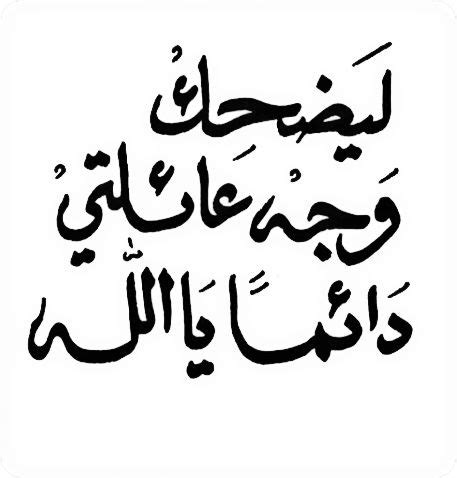 لَيَضحكْ
وَجهْ عَائلتيْ
دَائمًا يَا اللّٰه